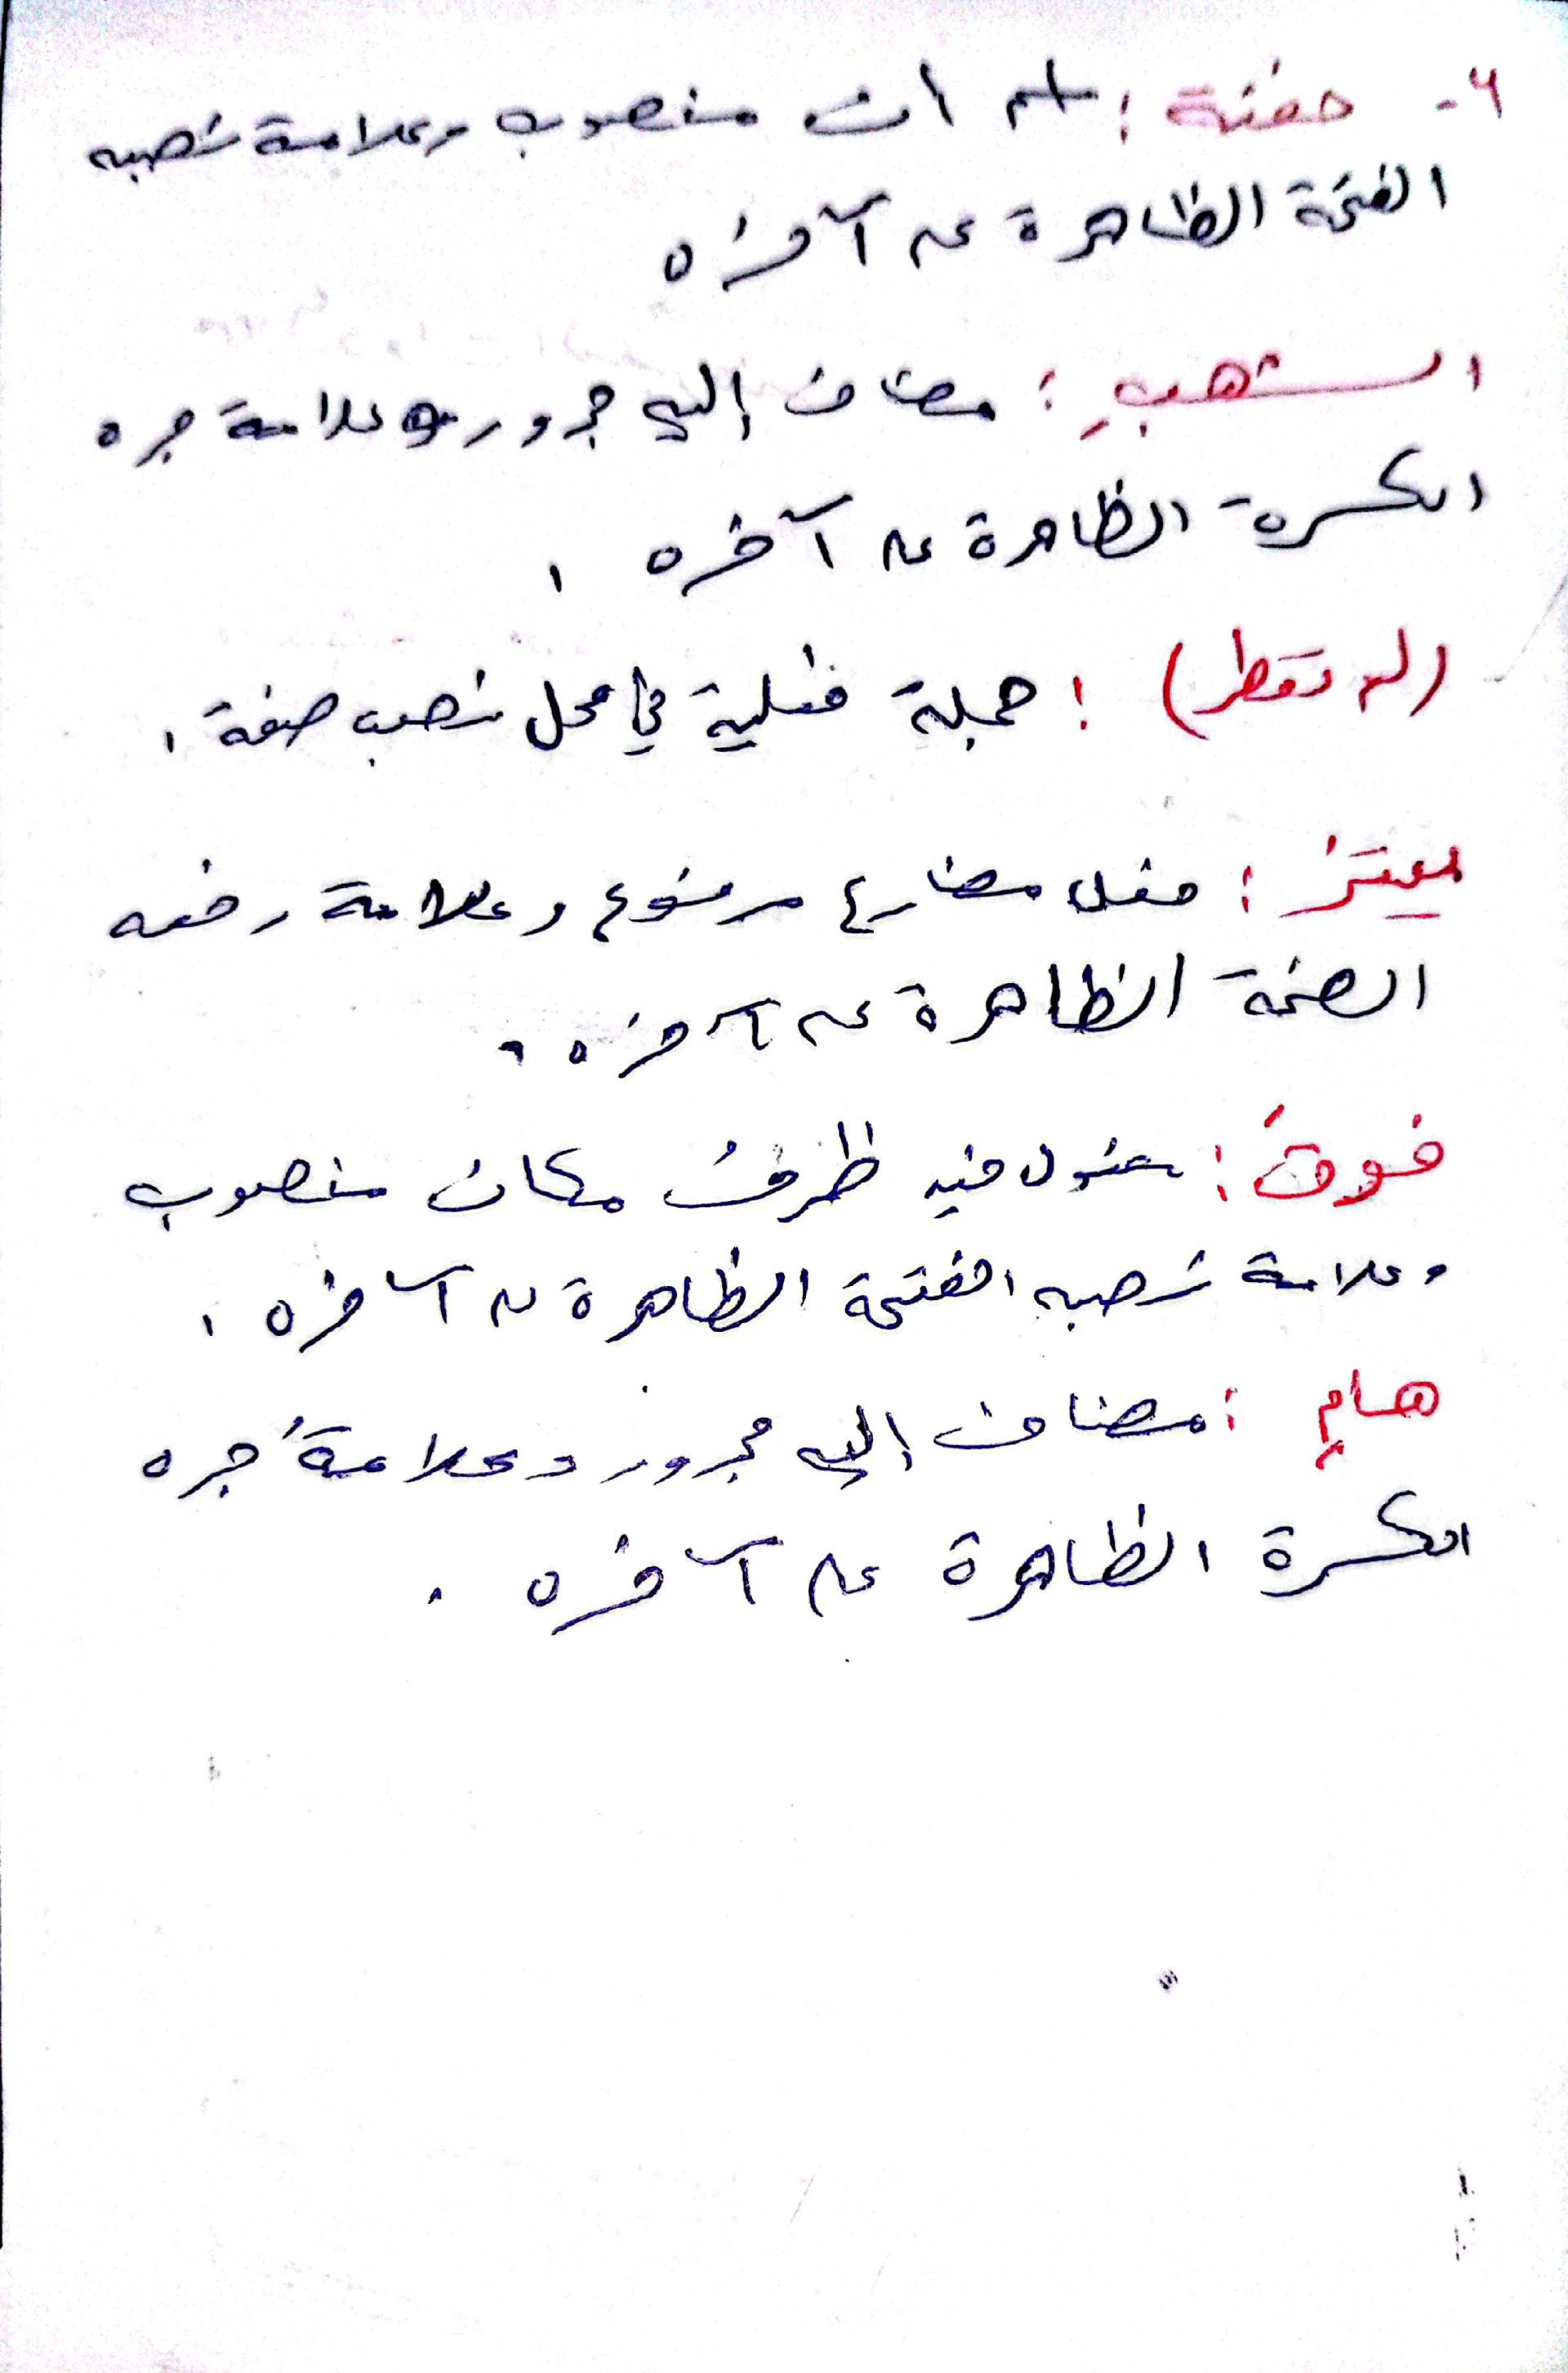 ٦- حفنة : اسم أن منصوب وعلامة نصبه
الفتحة الظاهرة على آخره
الشهبِ : مضاف إليه مجرور وعلامة جره
الكسرة الظاهرة على آخره .
(لم تمطر) : جملة فعلية في محل نصب صفة .
يهتز : فعل مضارع مرفوع وعلامة رفعه
الضمة الظاهرة على آخره .
فوقَ : مفعول فيه ظرف مكان منصوب
وعلامة نصبه الفتحة الظاهرة على آخره .
هامِ : مضاف إليه مجرور وعلامةُ جره
الكسرة الظاهرة على آخره .